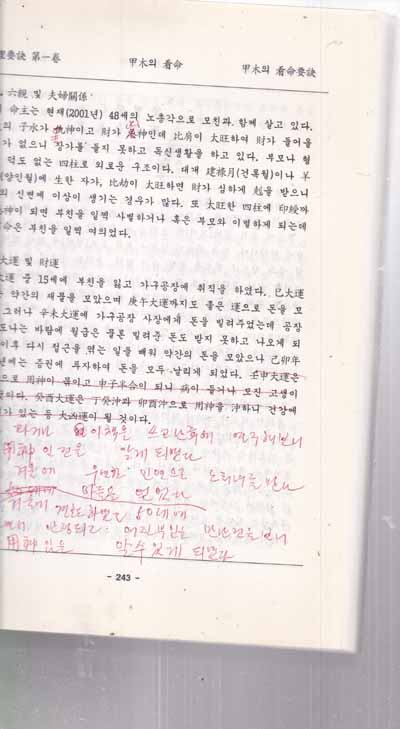 理要訣 第一卷 甲木의 看命 甲木의 看命要訣
. 六親 및 夫婦關係
命主는 현재(2001년) 48세의 노총각으로 모친과 함께 살고 있다.
의 子水가 神이고 財가 神인데 比肩이 太旺하여 財가 들어올
가 없으니 장가를 들지 못하고 독신생활을 하고 있다. 부모나 형
덕도 없는 四柱로 외로운 구조이다. 대개 建祿月(건록월)이나 羊
양인월)에 生한 자가, 比劫이 太旺하면 財가 심하게 剋을 받으니
의 신변에 이상이 생기는 경우가 많다. 또 太旺한 四柱에 印綬까
神이 되면 부친을 일찍 사별하거나 혹은 부모와 이별하게 되는데
命은 부친을 일찍 여의었다.
大運 및 財運
大運 중 15세에 부친을 잃고 가구공장에 취직을 하였다. 巳大運
는 약간의 재물을 모았으며 庚午大運까지도 좋은 運으로 돈을 모
그러나 辛未大運에 가구공장 사장에게 돈을 빌려주었는데 공장
도나는 바람에 월급은 물론 빌려준 돈도 받지 못하고 나오게 되
이후 다시 철근을 엮는 일을 배워 약간의 돈을 모았으나 己卯年
년에는 증권에 투자하여 돈을 모두 날리게 되었다. 壬申大運은
으로 用神이 묶이고 申子半合이 되니 病이 들거나 모진 고생이
하다. 癸酉大運은 丁癸沖과 卯酉沖으로 用神을 沖하니 건강에
가 있는 등 大凶運이 될 것이다.
이책은 쓰고난후에
用神 알게 되였다
겨울에 우연한 인연으로
마음을 얻었다
50세에
用神 알수있게 되였다
- 243 -